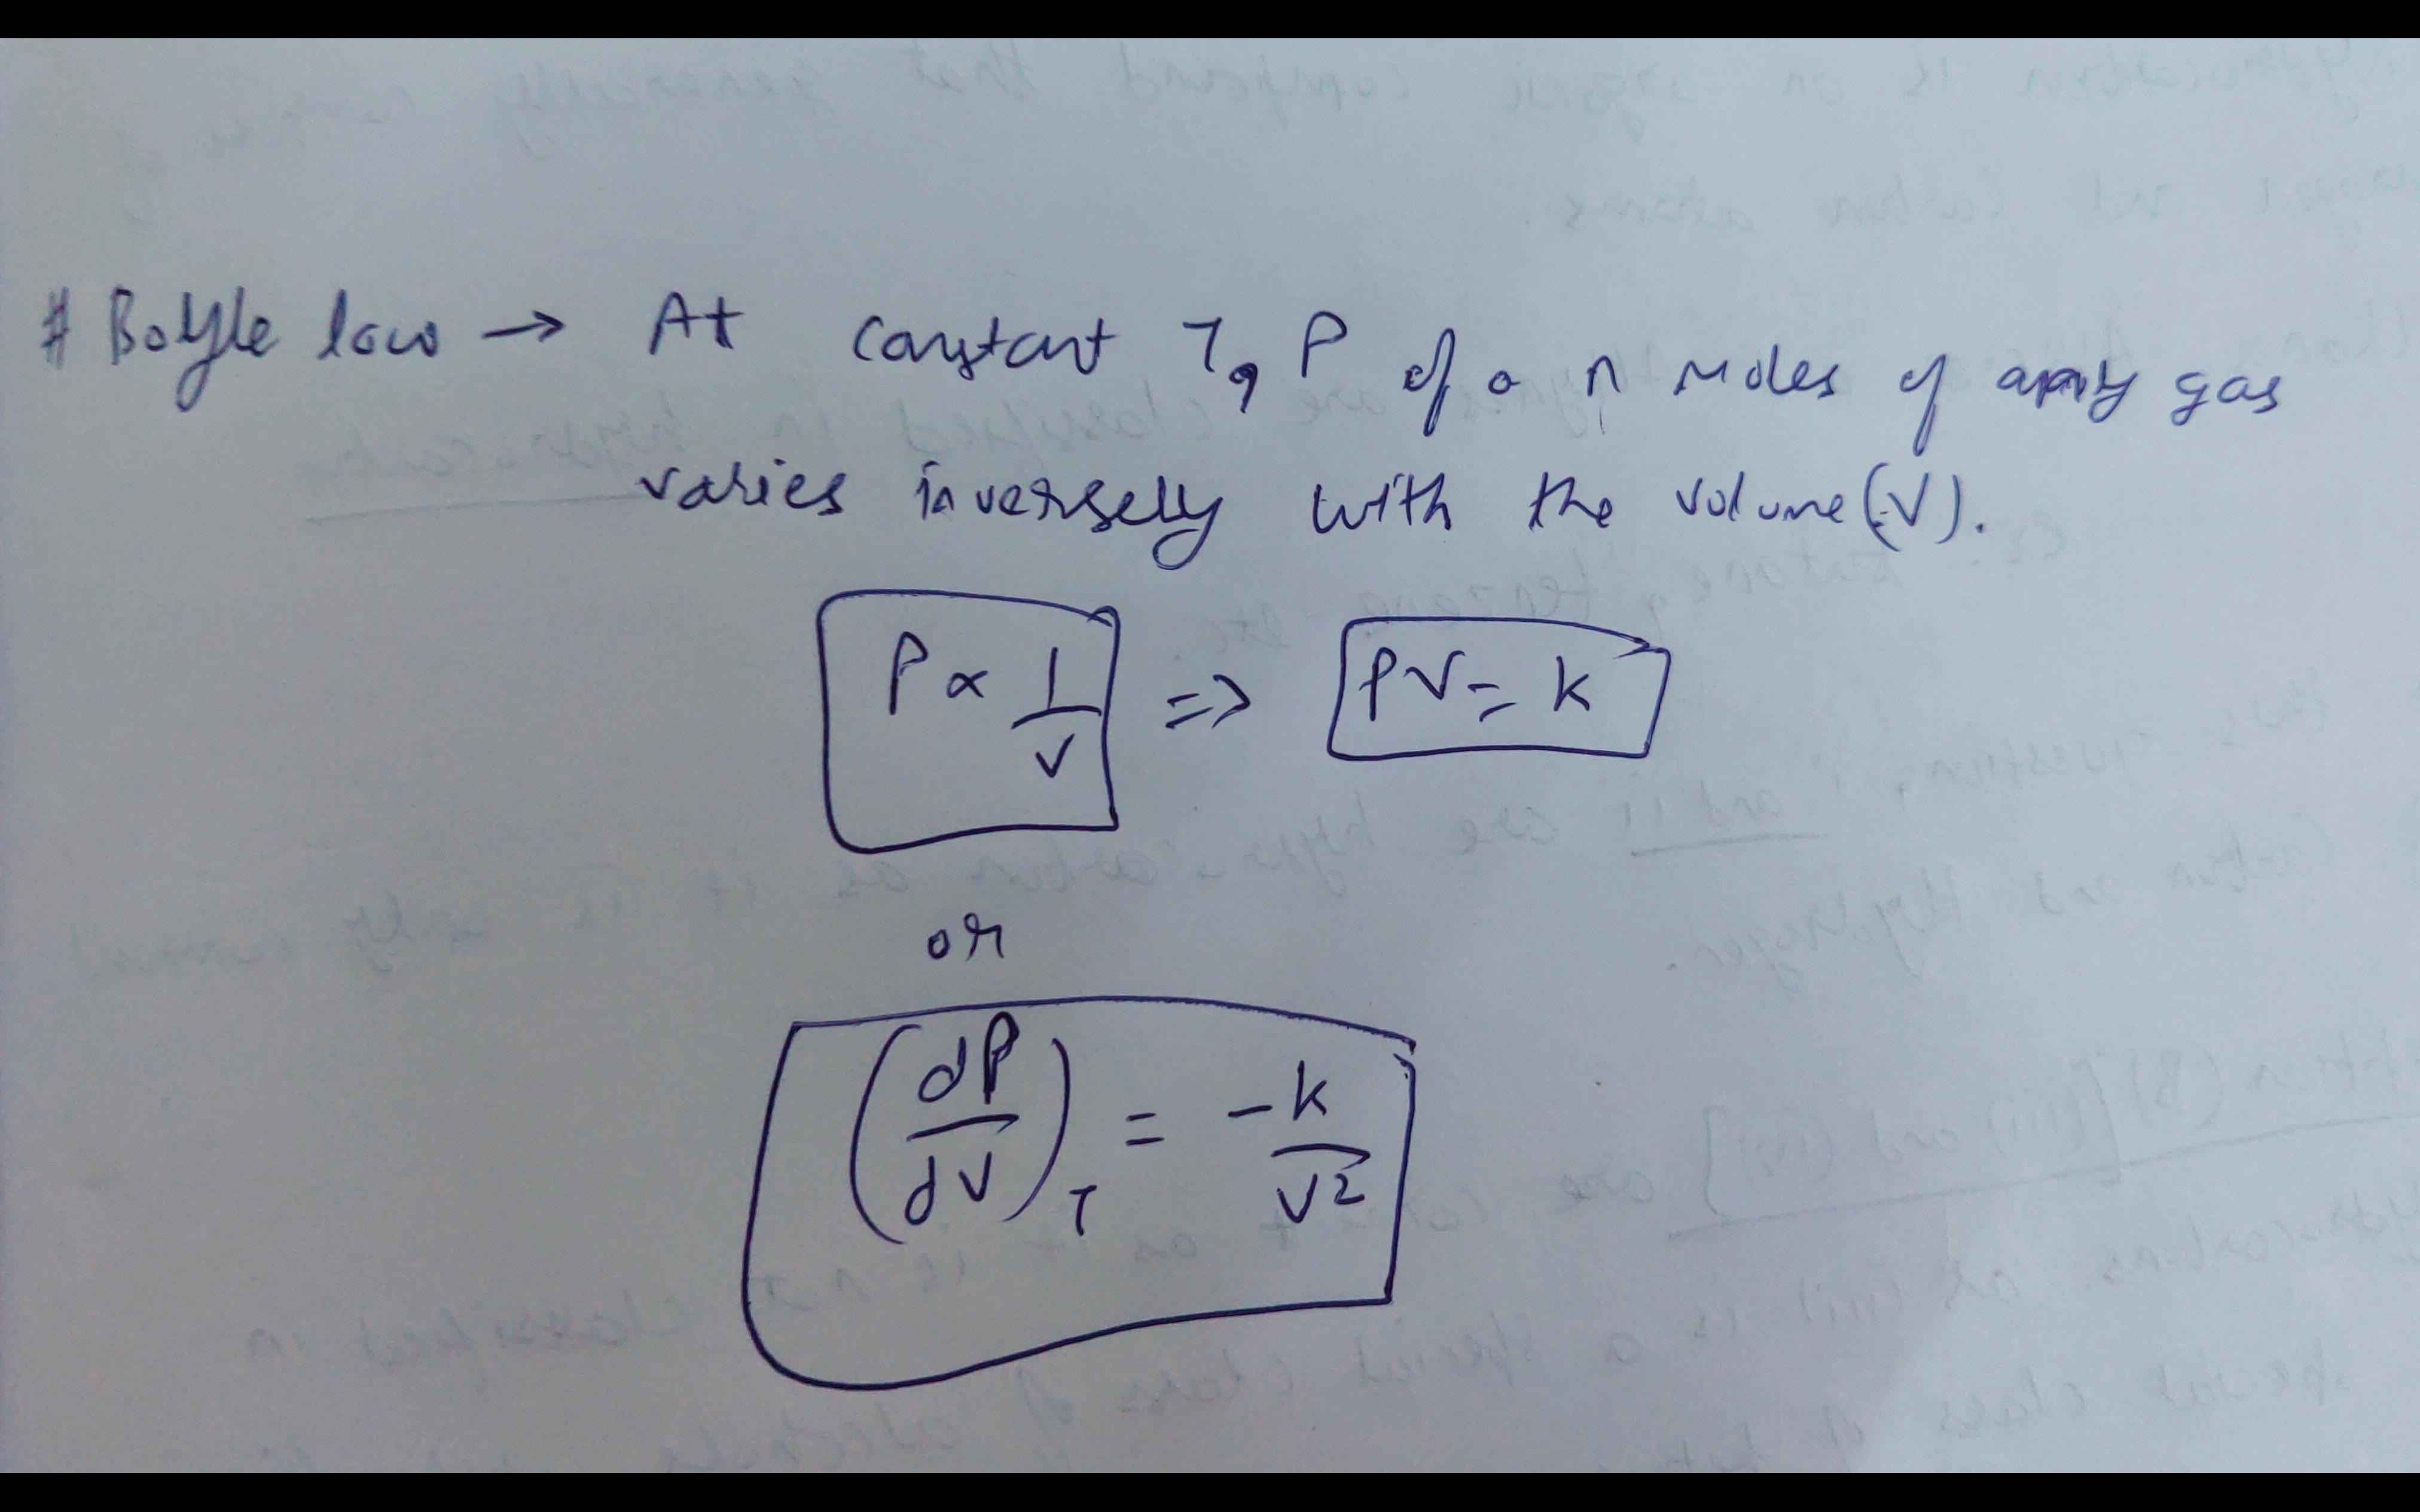 # Boyle law → At constant T, P of a n moles of any gas
varies inversely with the volume (V).
P ∝ 1/V => PV = k
or
(dP/dV)_T = -k/V²